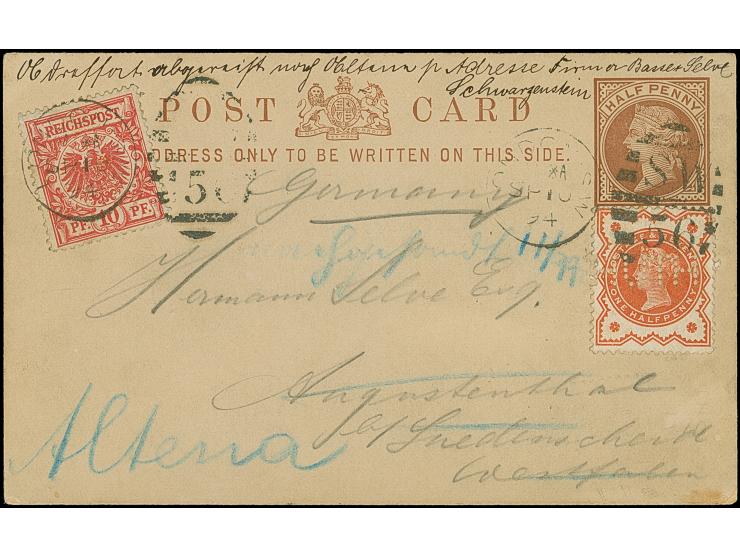 Obdreffort abgereist nach Altena p Adresse Firma Basse & Selve
Schwarzenstein
POST CARD
ADDRESS ONLY TO BE WRITTEN ON THIS SIDE.
HALF PENNY
REICHSPOST
10
PF. 10 PF.
SP 10
94
Germany
ONE HALFPENNY
Hermann Selve Esq.
Augustenthal
b/ Luedenscheid
Westfalen
Altena